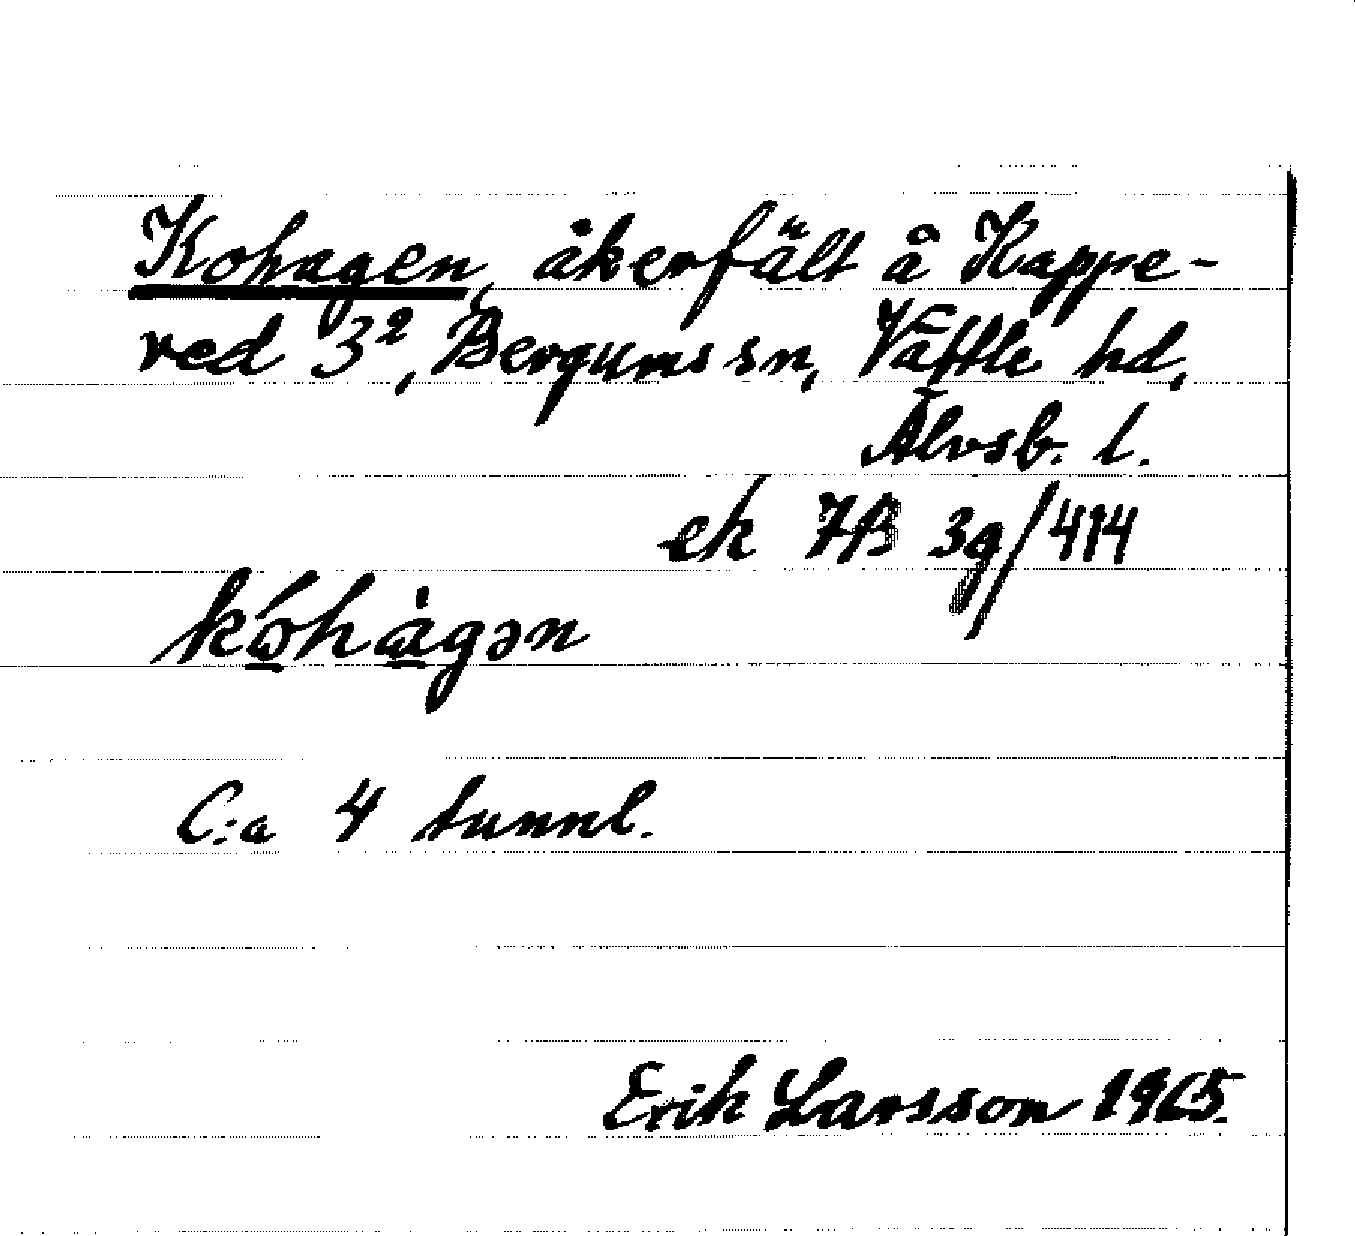 Kohagen, åkerfält å Kappe-
red 3², Bergums sn, Vättle hd,
Älvsb. l.
ek 7B 3g/414
kóhàgən
C:a 4 tunnl.
Erik Larsson 1965.